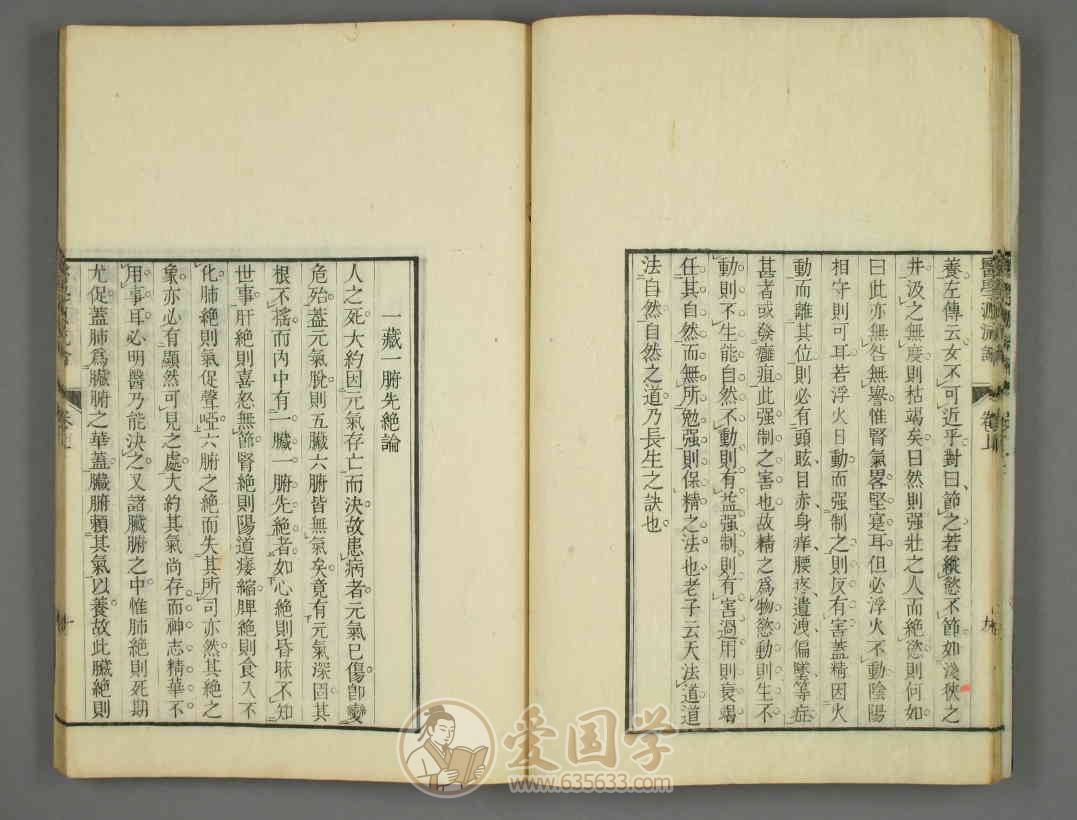 醫學源流論
卷上
養左傳云女不可近乎對曰節之若縱慾不節如淺狹之
井汲之無度則枯竭矣曰然則强壯之人而絕慾則何如
曰此亦無咎無譽惟腎氣畧堅寔耳但必浮火不動陰陽
相守則可耳若浮火日動而强制之則反有害蓋精因火
動而離其位則必有頭眩目赤身痒腰疼遺洩偏墜等症
甚者或發癰疽此强制之害也故精之爲物慾動則生不
動則不生能自然不動則有益强制則有害過用則衰竭
任其自然而無所勉强則保精之法也老子云天法道道
法自然自然之道乃長生之訣也
一藏一腑先絕論
人之死大約因元氣存亡而決故患病者元氣已傷卽變
危殆蓋元氣脫則五臟六腑皆無氣矣竟有元氣深固其
根不搖而內中有一臟一腑先絕者如心絕則昏昧不知
世事肝絕則喜怒無節腎絕則陽道痿縮脾絕則食入不
化肺絕則氣促聲啞六腑之絕而失其所司亦然其絕之
象亦必有顯然可見之處大約其氣尚存而神志精華不
用事耳必明醫乃能決之又諸臟腑之中惟肺絕則死期
尤促蓋肺爲臟腑之華蓋臟腑賴其氣以養故此臟絕則
爱国学
www.635633.com